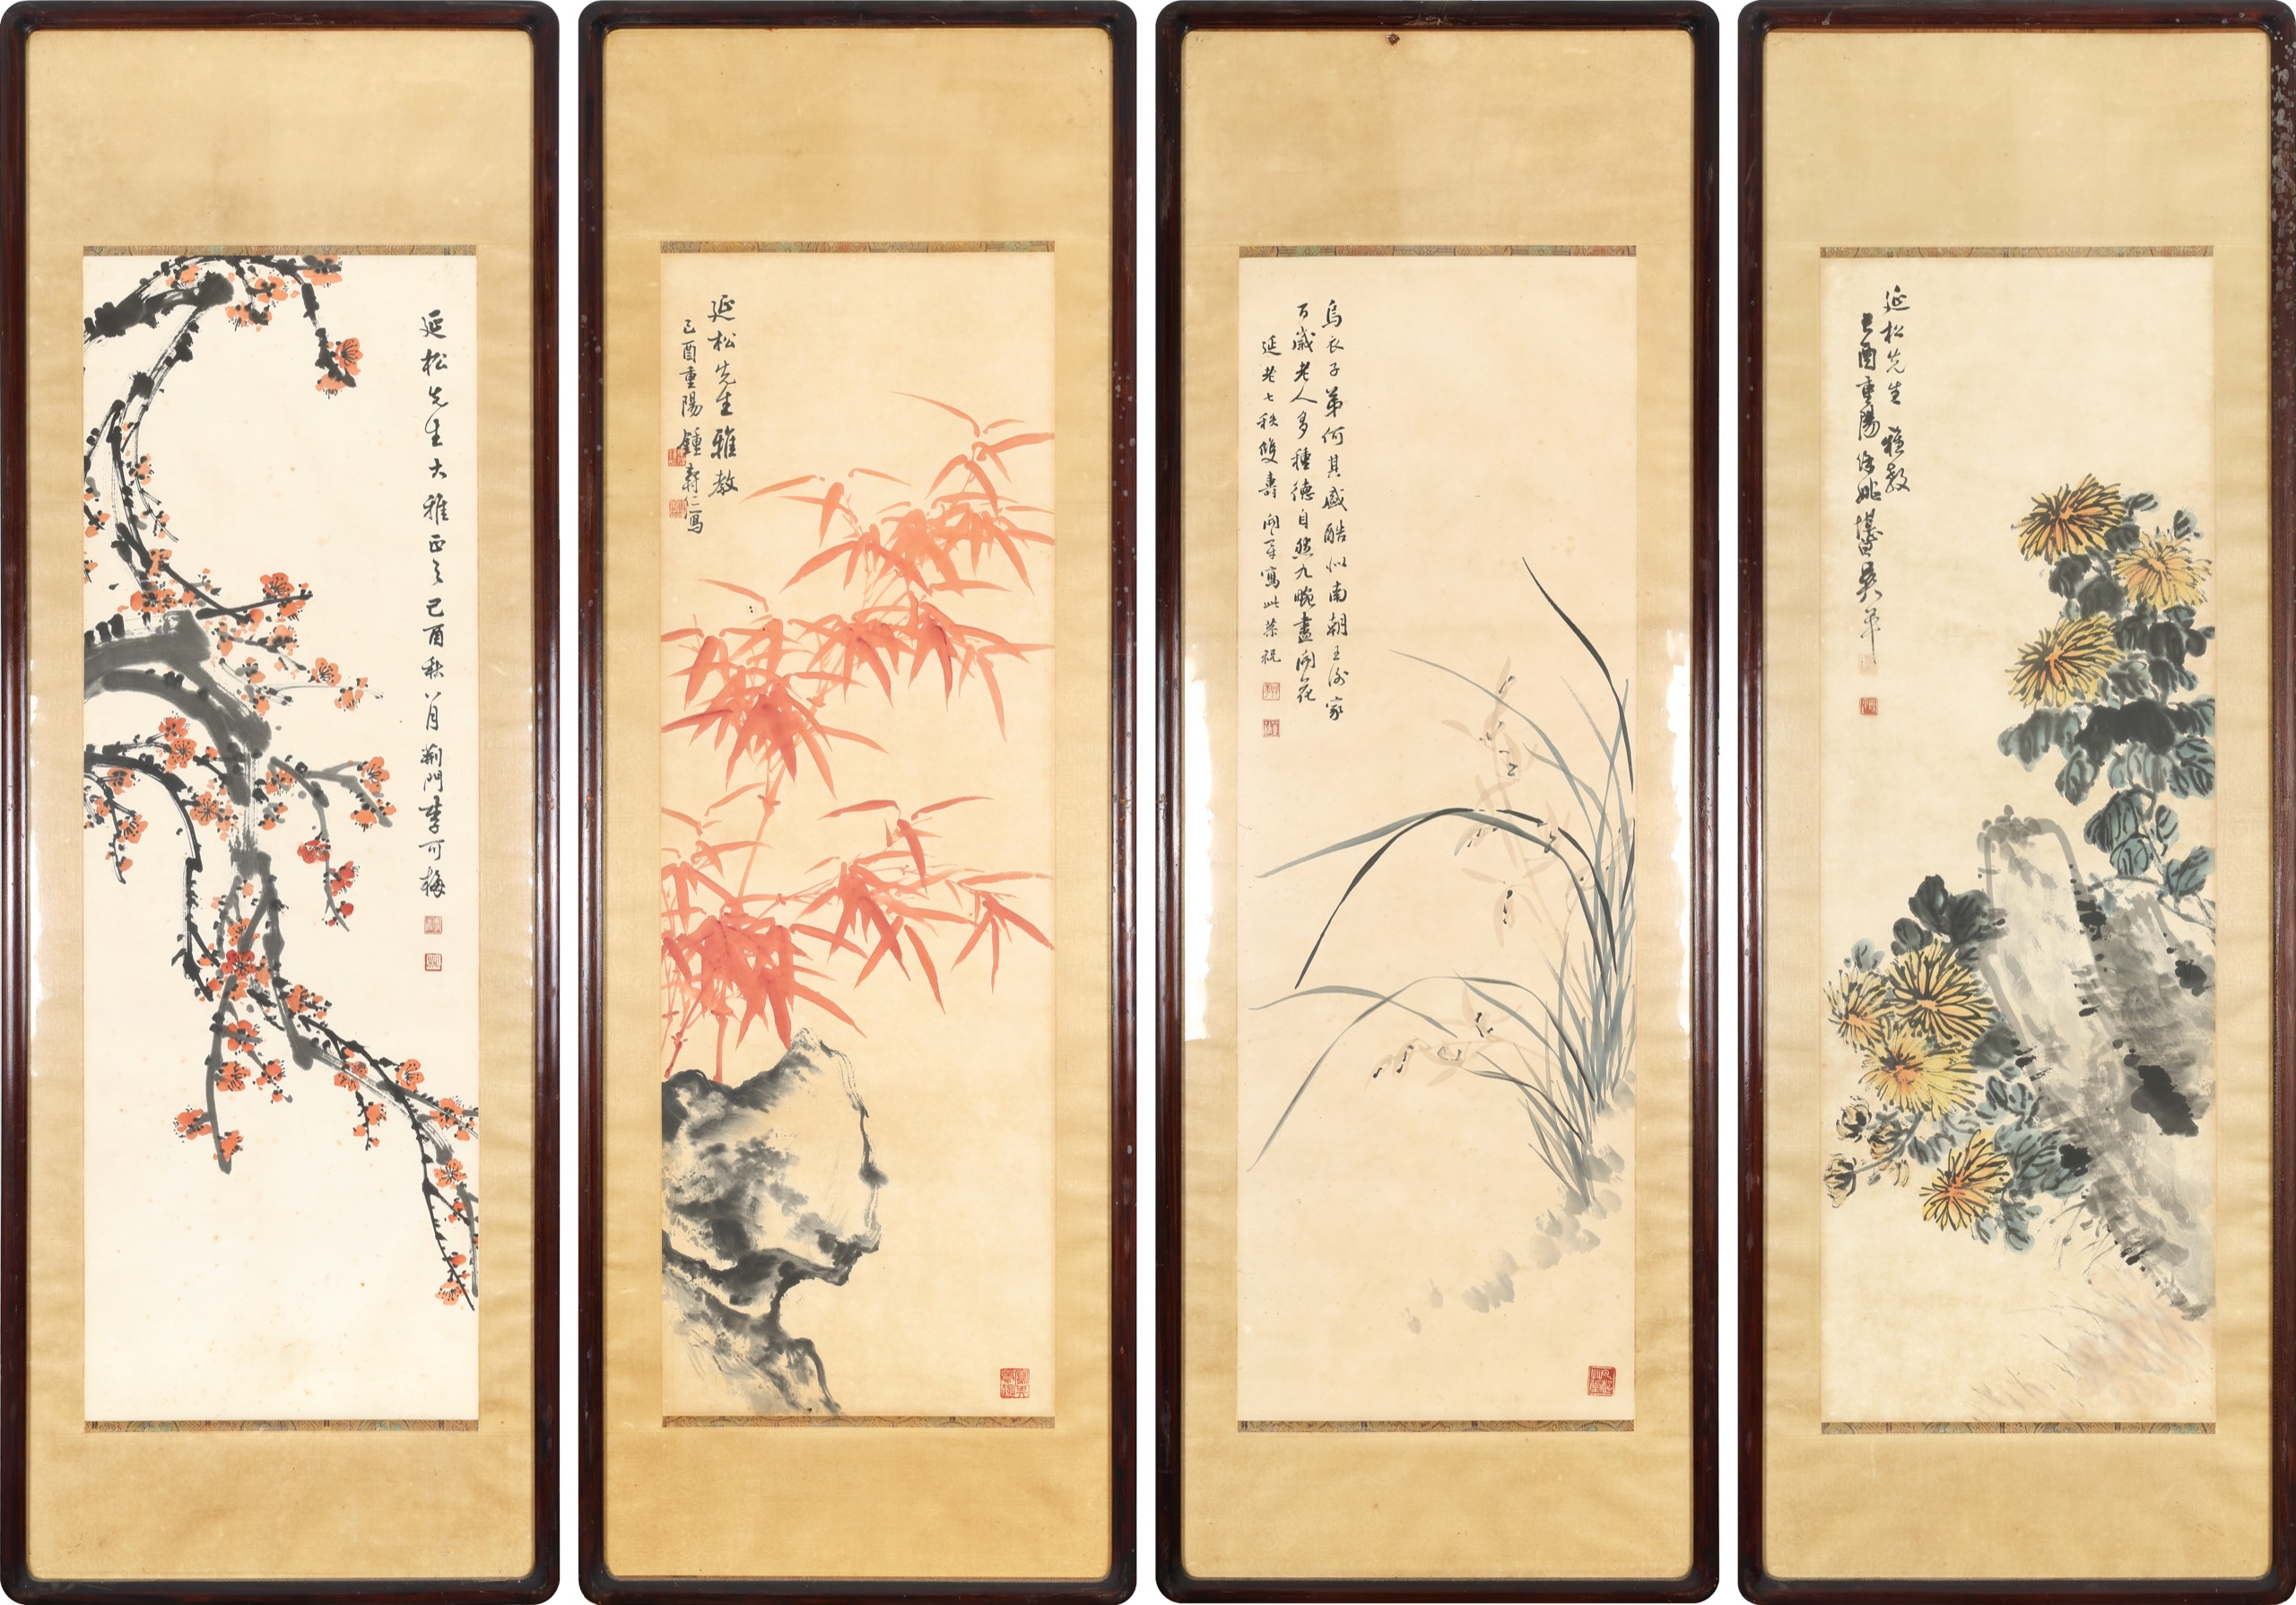 延松先生大雅正之己酉秋八月荊門李可梅
延松先生 雅教
己酉重陽 鍾壽仁寫
烏衣子弟何其盛酷似南朝王謝家
百歲老人多種德自然九畹盡開花
延老七秩雙壽 開年寫此恭祝
延松先生 雅教
己酉重陽 餘姚堪白吳平